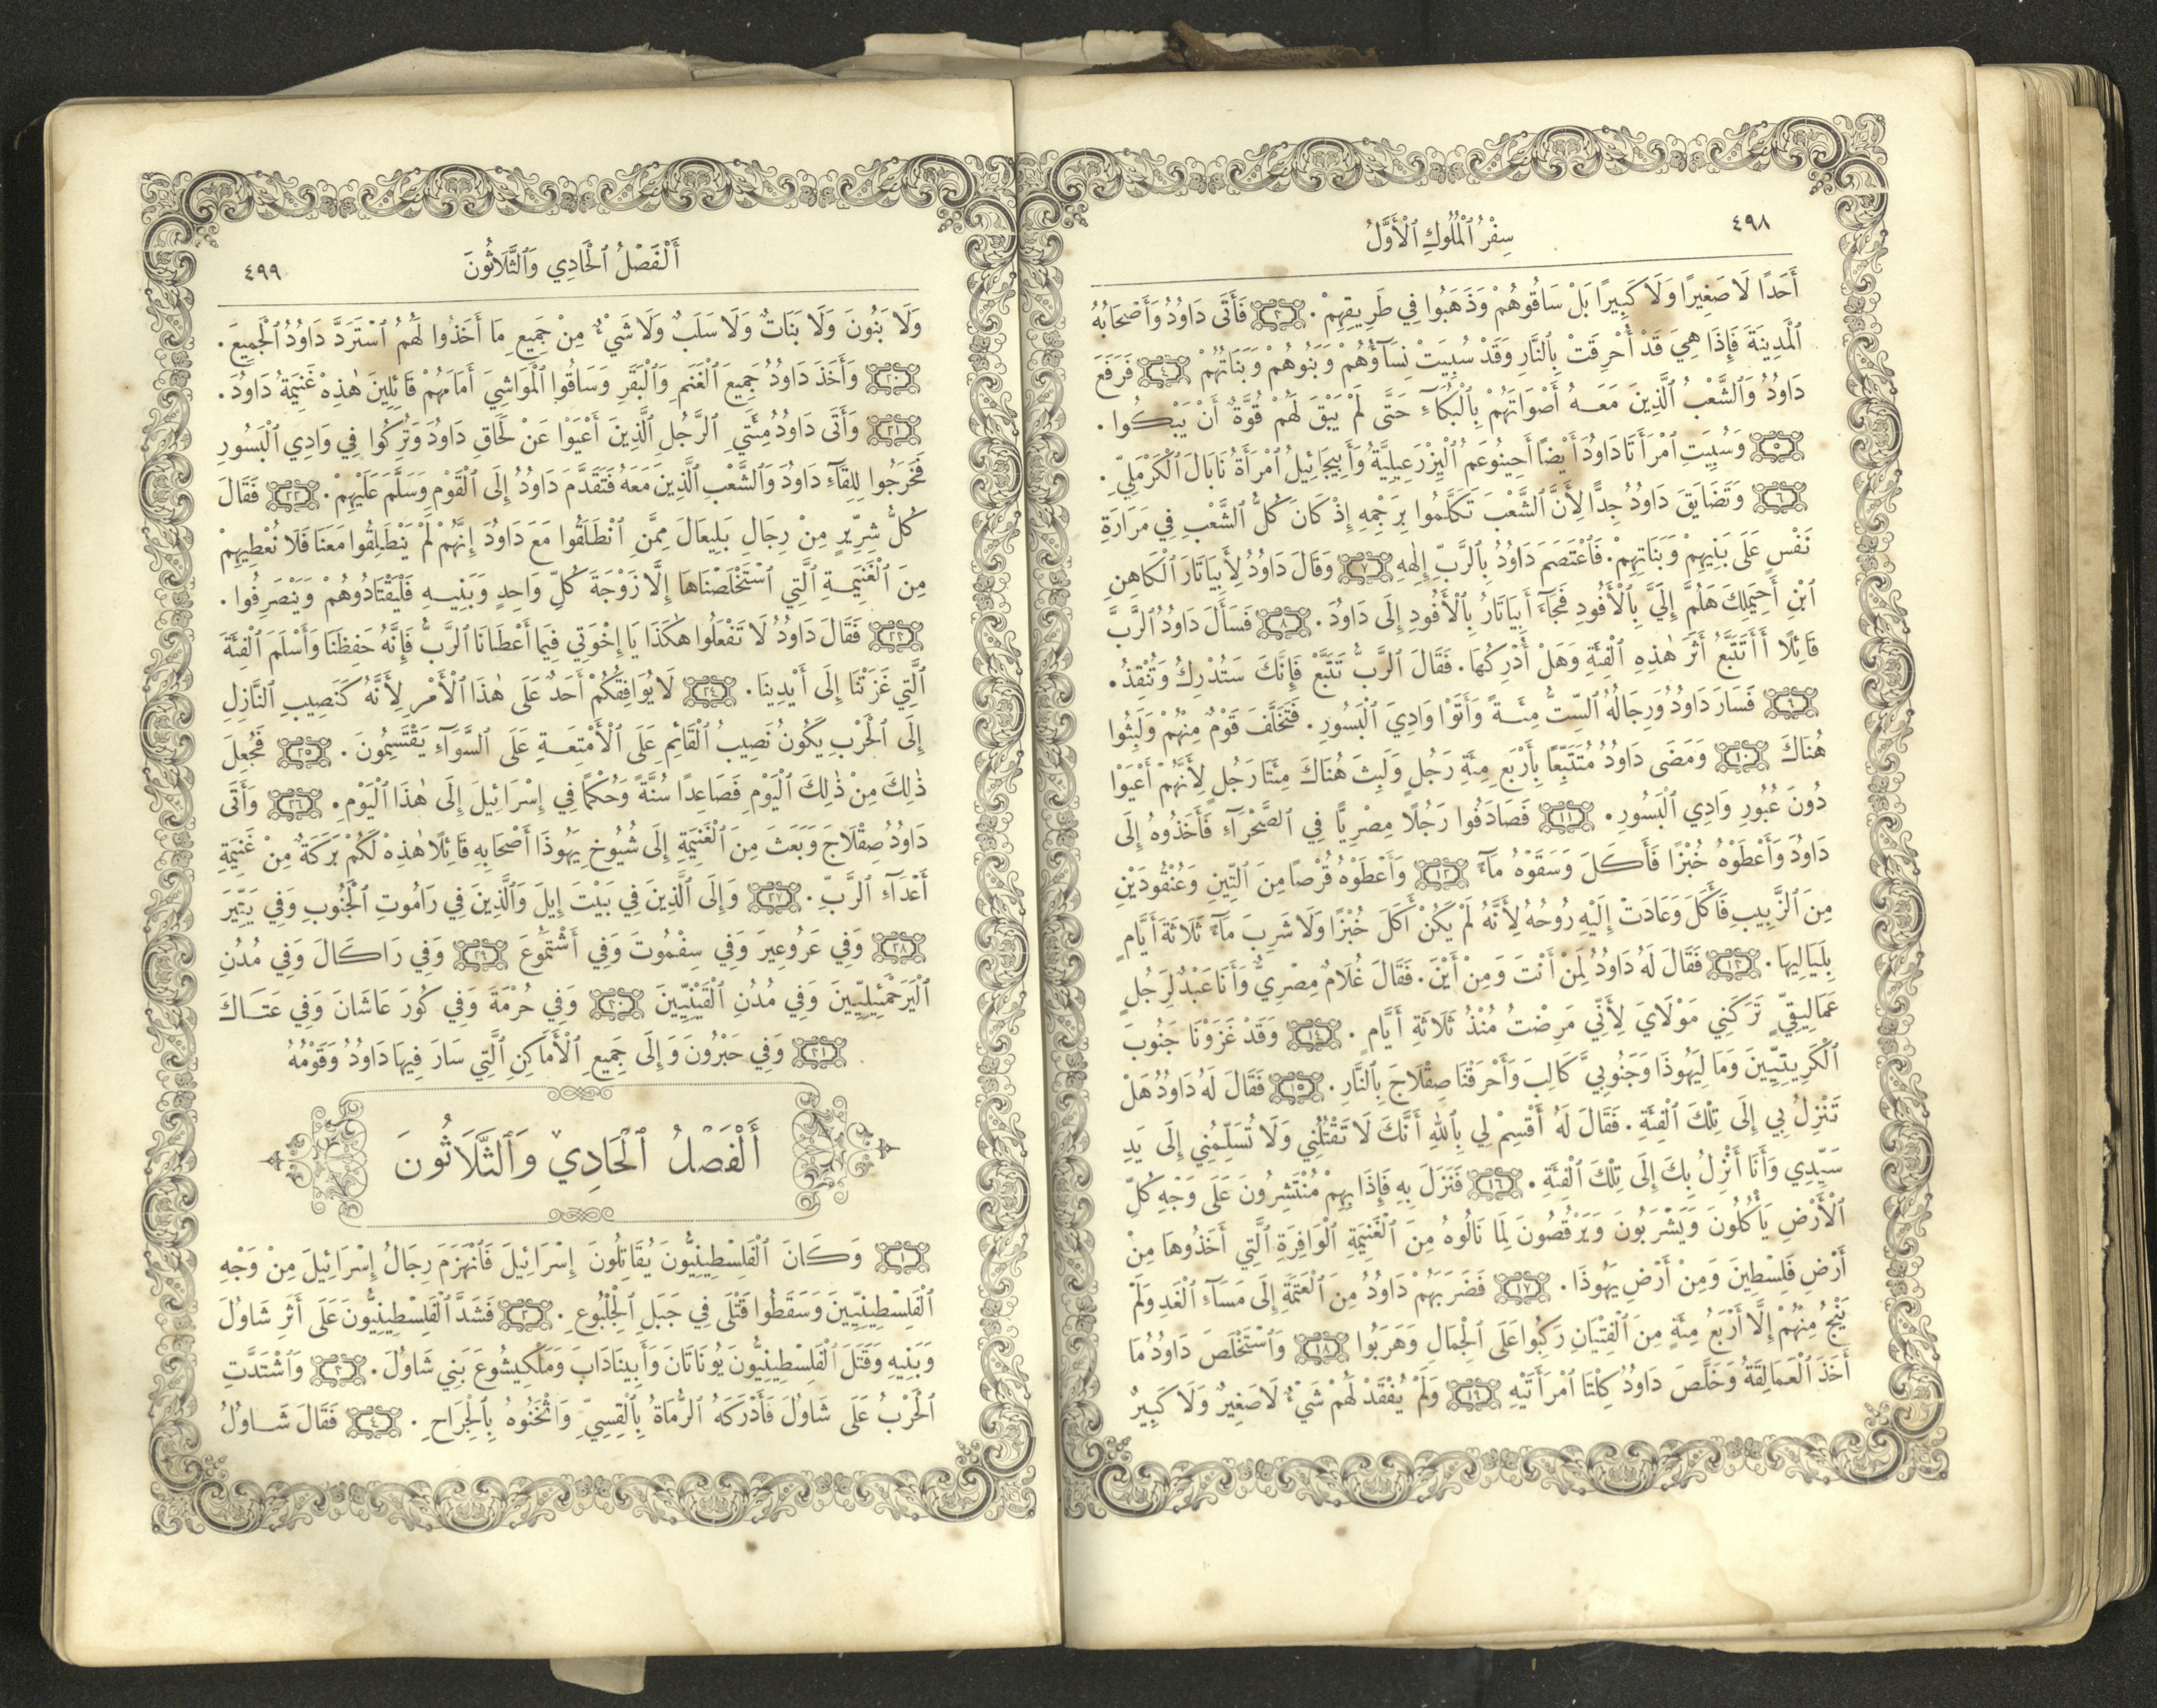 ٤٩٨
سِفْرُ ٱلْمُلُوكِ ٱلْأَوَّلُ
أَحَدًا لَا صَغِيرًا وَلَا كَبِيرًا بَلْ سَاقُوهُمْ وَذَهَبُوا فِي طَرِيقِهِمْ. ٣ فَأَتَى دَاوُدُ وَأَصْحَابُهُ
ٱلْمَدِينَةَ فَإِذَا هِيَ قَدْ أُحْرِقَتْ بِٱلنَّارِ وَقَدْ سُبِيَتْ نِسَآؤُهُمْ وَبَنُوهُمْ وَبَنَاتُهُمْ ٤ فَرَفَعَ
دَاوُدُ وَٱلشَّعْبُ ٱلَّذِينَ مَعَهُ أَصْوَاتَهُمْ بِٱلْبُكَآءِ حَتَّى لَمْ يَبْقَ لَهُمْ قُوَّةٌ أَنْ يَبْكُوا.
٥ وَسُبِيَتِ ٱمْرَأَتَا دَاوُدَ أَيْضًا أَحِينُوعَمُ ٱلْيِزْرَعِيلِيَّةُ وَأَبِيجَائِيلُ ٱمْرَأَةُ نَابَالَ ٱلْكَرْمَلِيِّ.
٦ وَتَضَايَقَ دَاوُدُ جِدًّا لِأَنَّ ٱلشَّعْبَ تَكَلَّمُوا بِرَجْمِهِ إِذْ كَانَ كُلُّ ٱلشَّعْبِ فِي مَرَارَةِ
نَفْسٍ عَلَى بَنِيهِمْ وَبَنَاتِهِمْ. فَٱعْتَصَمَ دَاوُدُ بِٱلرَّبِّ إِلٰهِهِ ٧ وَقَالَ دَاوُدُ لِأَبِيَاتَارَ ٱلْكَاهِنِ
ٱبْنِ أَحِيمَلِكَ هَلُمَّ إِلَيَّ بِٱلْأَفُودِ فَجَآءَ أَبِيَاتَارُ بِٱلْأَفُودِ إِلَى دَاوُدَ. ٨ فَسَأَلَ دَاوُدُ ٱلرَّبَّ
قَائِلًا أَأَتَتَبَّعُ أَثَرَ هٰذِهِ ٱلْفِئَةِ وَهَلْ أُدْرِكُهَا. فَقَالَ ٱلرَّبُّ تَتَبَّعْ فَإِنَّكَ سَتُدْرِكُ وَتُنْقِذُ.
٩ فَسَارَ دَاوُدُ وَرِجَالُهُ ٱلسِّتُّ مِئَةً وَأَتَوْا وَادِيَ ٱلْبَسُورِ. فَتَخَلَّفَ قَوْمٌ مِنْهُمْ وَلَبِثُوا
هُنَاكَ ١٠ وَمَضَى دَاوُدُ مُتَتَبِّعًا بِأَرْبَعِ مِئَةِ رَجُلٍ وَلَبِثَ هُنَاكَ مِئَتَا رَجُلٍ لِأَنَّهُمْ أَعْيَوْا
دُونَ عُبُورِ وَادِي ٱلْبَسُورِ. ١١ فَصَادَفُوا رَجُلًا مِصْرِيًّا فِي ٱلصَّحْرَآءِ فَأَخَذُوهُ إِلَى
دَاوُدَ وَأَعْطَوْهُ خُبْزًا فَأَكَلَ وَسَقَوْهُ مَآءً ١٢ وَأَعْطَوْهُ قُرْصًا مِنَ ٱلتِّينِ وَعُنْقُودَيْنِ
مِنَ ٱلزَّبِيبِ فَأَكَلَ وَعَادَتْ إِلَيْهِ رُوحُهُ لِأَنَّهُ لَمْ يَكُنْ أَكَلَ خُبْزًا وَلَا شَرِبَ مَآءً ثَلَاثَةَ أَيَّامٍ
بِلَيَالِيهَا. ١٣ فَقَالَ لَهُ دَاوُدُ لِمَنْ أَنْتَ وَمِنْ أَيْنَ. فَقَالَ غُلَامٌ مِصْرِيٌّ وَأَنَا عَبْدٌ لِرَجُلٍ
عَمَالِيقِيٍّ تَرَكَنِي مَوْلَايَ لِأَنِّي مَرِضْتُ مُنْذُ ثَلَاثَةِ أَيَّامٍ. ١٤ وَقَدْ غَزَوْنَا جَنُوبَ
ٱلْكَرِيتِيِّينَ وَمَا لِيَهُوذَا وَجَنُوبِيَّ كَالِبَ وَأَحْرَقْنَا صِقْلَاجَ بِٱلنَّارِ. ١٥ فَقَالَ لَهُ دَاوُدُ هَلْ
تَنْزِلُ بِي إِلَى تِلْكَ ٱلْفِئَةِ. فَقَالَ لَهُ أَقْسِمْ لِي بِٱللهِ أَنَّكَ لَا تَقْتُلُنِي وَلَا تُسَلِّمُنِي إِلَى يَدِ
سَيِّدِي وَأَنَا أَنْزِلُ بِكَ إِلَى تِلْكَ ٱلْفِئَةِ. ١٦ فَنَزَلَ بِهِ فَإِذَا بِهِمْ مُنْتَشِرُونَ عَلَى وَجْهِ كُلِّ
ٱلْأَرْضِ يَأْكُلُونَ وَيَشْرَبُونَ وَيَرْقُصُونَ لِمَا نَالُوهُ مِنَ ٱلْغَنِيمَةِ ٱلْوَافِرَةِ ٱلَّتِي أَخَذُوهَا مِنْ
أَرْضِ فَلِسْطِينَ وَمِنْ أَرْضِ يَهُوذَا. ١٧ فَضَرَبَهُمْ دَاوُدُ مِنَ ٱلْعَتَمَةِ إِلَى مَسَآءِ ٱلْغَدِ وَلَمْ
يَنْجُ مِنْهُمْ إِلَّا أَرْبَعُ مِئَةٍ مِنَ ٱلْفِتْيَانِ رَكِبُوا عَلَى ٱلْجِمَالِ وَهَرَبُوا ١٨ وَٱسْتَخْلَصَ دَاوُدُ مَا
أَخَذَ ٱلْعَمَالِقَةُ وَخَلَّصَ دَاوُدُ كِلْتَا ٱمْرَأَتَيْهِ ١٩ وَلَمْ يُفْقَدْ لَهُمْ شَيْءٌ لَا صَغِيرٌ وَلَا كَبِيرٌ
أَلْفَصْلُ ٱلْحَادِي وَٱلثَّلَاثُونَ
٤٩٩
وَلَا بَنُونَ وَلَا بَنَاتٌ وَلَا سَلَبٌ وَلَا شَيْءٌ مِنْ جَمِيعِ مَا أَخَذُوا لَهُمُ ٱسْتَرَدَّ دَاوُدُ ٱلْجَمِيعَ.
٢٠ وَأَخَذَ دَاوُدُ جَمِيعَ ٱلْغَنَمِ وَٱلْبَقَرِ وَسَاقُوا ٱلْمَوَاشِيَ أَمَامَهُمْ قَائِلِينَ هٰذِهْ غَنِيمَةُ دَاوُدَ.
٢١ وَأَتَى دَاوُدُ مِئَتَيِ ٱلرَّجُلِ ٱلَّذِينَ أَعْيَوْا عَنْ لَحَاقِ دَاوُدَ وَتُرِكُوا فِي وَادِي ٱلْبَسُورِ
فَخَرَجُوا لِلِقَآءِ دَاوُدَ وَٱلشَّعْبِ ٱلَّذِينَ مَعَهُ فَتَقَدَّمَ دَاوُدُ إِلَى ٱلْقَوْمِ وَسَلَّمَ عَلَيْهِمْ. ٢٢ فَقَالَ
كُلُّ شِرِّيرٍ مِنْ رِجَالِ بَلِيعَالَ مِمَّنِ ٱنْطَلَقُوا مَعَ دَاوُدَ إِنَّهُمْ لَمْ يَنْطَلِقُوا مَعَنَا فَلَا نُعْطِيهِمْ
مِنَ ٱلْغَنِيمَةِ ٱلَّتِي ٱسْتَخْلَصْنَاهَا إِلَّا زَوْجَةَ كُلِّ وَاحِدٍ وَبَنِيهِ فَلْيَقْتَادُوهُمْ وَيَنْصَرِفُوا.
٢٣ فَقَالَ دَاوُدُ لَا تَفْعَلُوا هٰكَذَا يَا إِخْوَتِي فِيمَا أَعْطَانَا ٱلرَّبُّ فَإِنَّهُ حَفِظَنَا وَأَسْلَمَ ٱلْفِئَةَ
ٱلَّتِي غَزَتْنَا إِلَى أَيْدِينَا. ٢٤ لَا يُوَافِقُكُمْ أَحَدٌ عَلَى هٰذَا ٱلْأَمْرِ لِأَنَّهُ كَنَصِيبِ ٱلنَّازِلِ
إِلَى ٱلْحَرْبِ يَكُونُ نَصِيبُ ٱلْقَائِمِ عَلَى ٱلْأَمْتِعَةِ عَلَى ٱلسَّوَآءِ يَقْتَسِمُونَ. ٢٥ فَجُعِلَ
ذٰلِكَ مِنْ ذٰلِكَ ٱلْيَوْمِ فَصَاعِدًا سُنَّةً وَحُكْمًا فِي إِسْرَائِيلَ إِلَى هٰذَا ٱلْيَوْمِ. ٢٦ وَأَتَى
دَاوُدُ صِقْلَاجَ وَبَعَثَ مِنَ ٱلْغَنِيمَةِ إِلَى شُيُوخِ يَهُوذَا أَصْحَابِهِ قَائِلًا هٰذِهْ لَكُمْ بَرَكَةٌ مِنْ غَنِيمَةِ
أَعْدَآءِ ٱلرَّبِّ. ٢٧ وَإِلَى ٱلَّذِينَ فِي بَيْتَ إِيلَ وَٱلَّذِينَ فِي رَامُوتِ ٱلْجَنُوبِ وَفِي يَتِّيرَ
٢٨ وَفِي عَرُوعِيرَ وَفِي سِفْمُوتَ وَفِي أَشْتَمُوعَ ٢٩ وَفِي رَاكَالَ وَفِي مُدُنِ
ٱلْيَرَحْمَئِيلِيِّينَ وَفِي مُدُنِ ٱلْقَيْنِيِّينَ ٣٠ وَفِي حُرْمَةَ وَفِي كُورَ عَاشَانَ وَفِي عَتَاكَ
٣١ وَفِي حَبْرُونَ وَإِلَى جَمِيعِ ٱلْأَمَاكِنِ ٱلَّتِي سَارَ فِيهَا دَاوُدُ وَقَوْمُهُ
أَلْفَصْلُ ٱلْحَادِي وَٱلثَّلَاثُونَ
١ وَكَانَ ٱلْفَلِسْطِينِيُّونَ يُقَاتِلُونَ إِسْرَائِيلَ فَٱنْهَزَمَ رِجَالُ إِسْرَائِيلَ مِنْ وَجْهِ
ٱلْفَلِسْطِينِيِّينَ وَسَقَطُوا قَتْلَى فِي جَبَلِ ٱلْجِلْبُوعِ. ٢ فَشَدَّ ٱلْفَلِسْطِينِيُّونَ عَلَى أَثَرِ شَاوُلَ
وَبَنِيهِ وَقَتَلَ ٱلْفَلِسْطِينِيُّونَ يُونَاتَانَ وَأَبِينَادَابَ وَمَلْكِيشُوعَ بَنِي شَاوُلَ. ٣ وَٱشْتَدَّتِ
ٱلْحَرْبُ عَلَى شَاوُلَ فَأَدْرَكَهُ ٱلرُّمَاةُ بِٱلْقِسِيِّ وَأَثْخَنُوهُ بِٱلْجِرَاحِ. ٤ فَقَالَ شَاوُلُ